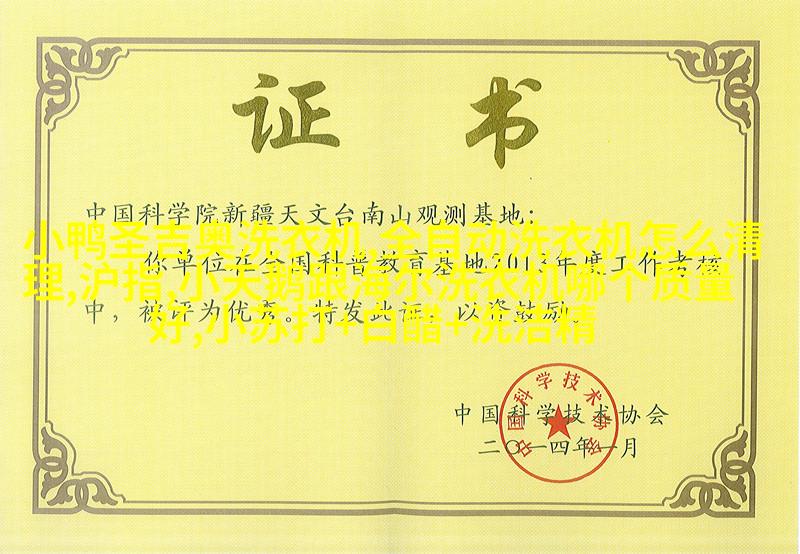 证 书
中国科学院新疆天文台南山观测基地：
小鸭圣吉奥洗衣机,全自动洗衣机怎么清
你单位在全国科普教育基地2013年度工作考核
理,沪指,小天鹅跟海尔洗衣机哪个质量
中，被评为优秀。特发此证，以资鼓励。
好,小苏打+白醋+洗洁精
中国科学技术协会
中国科学技术协会
二〇一四年一月